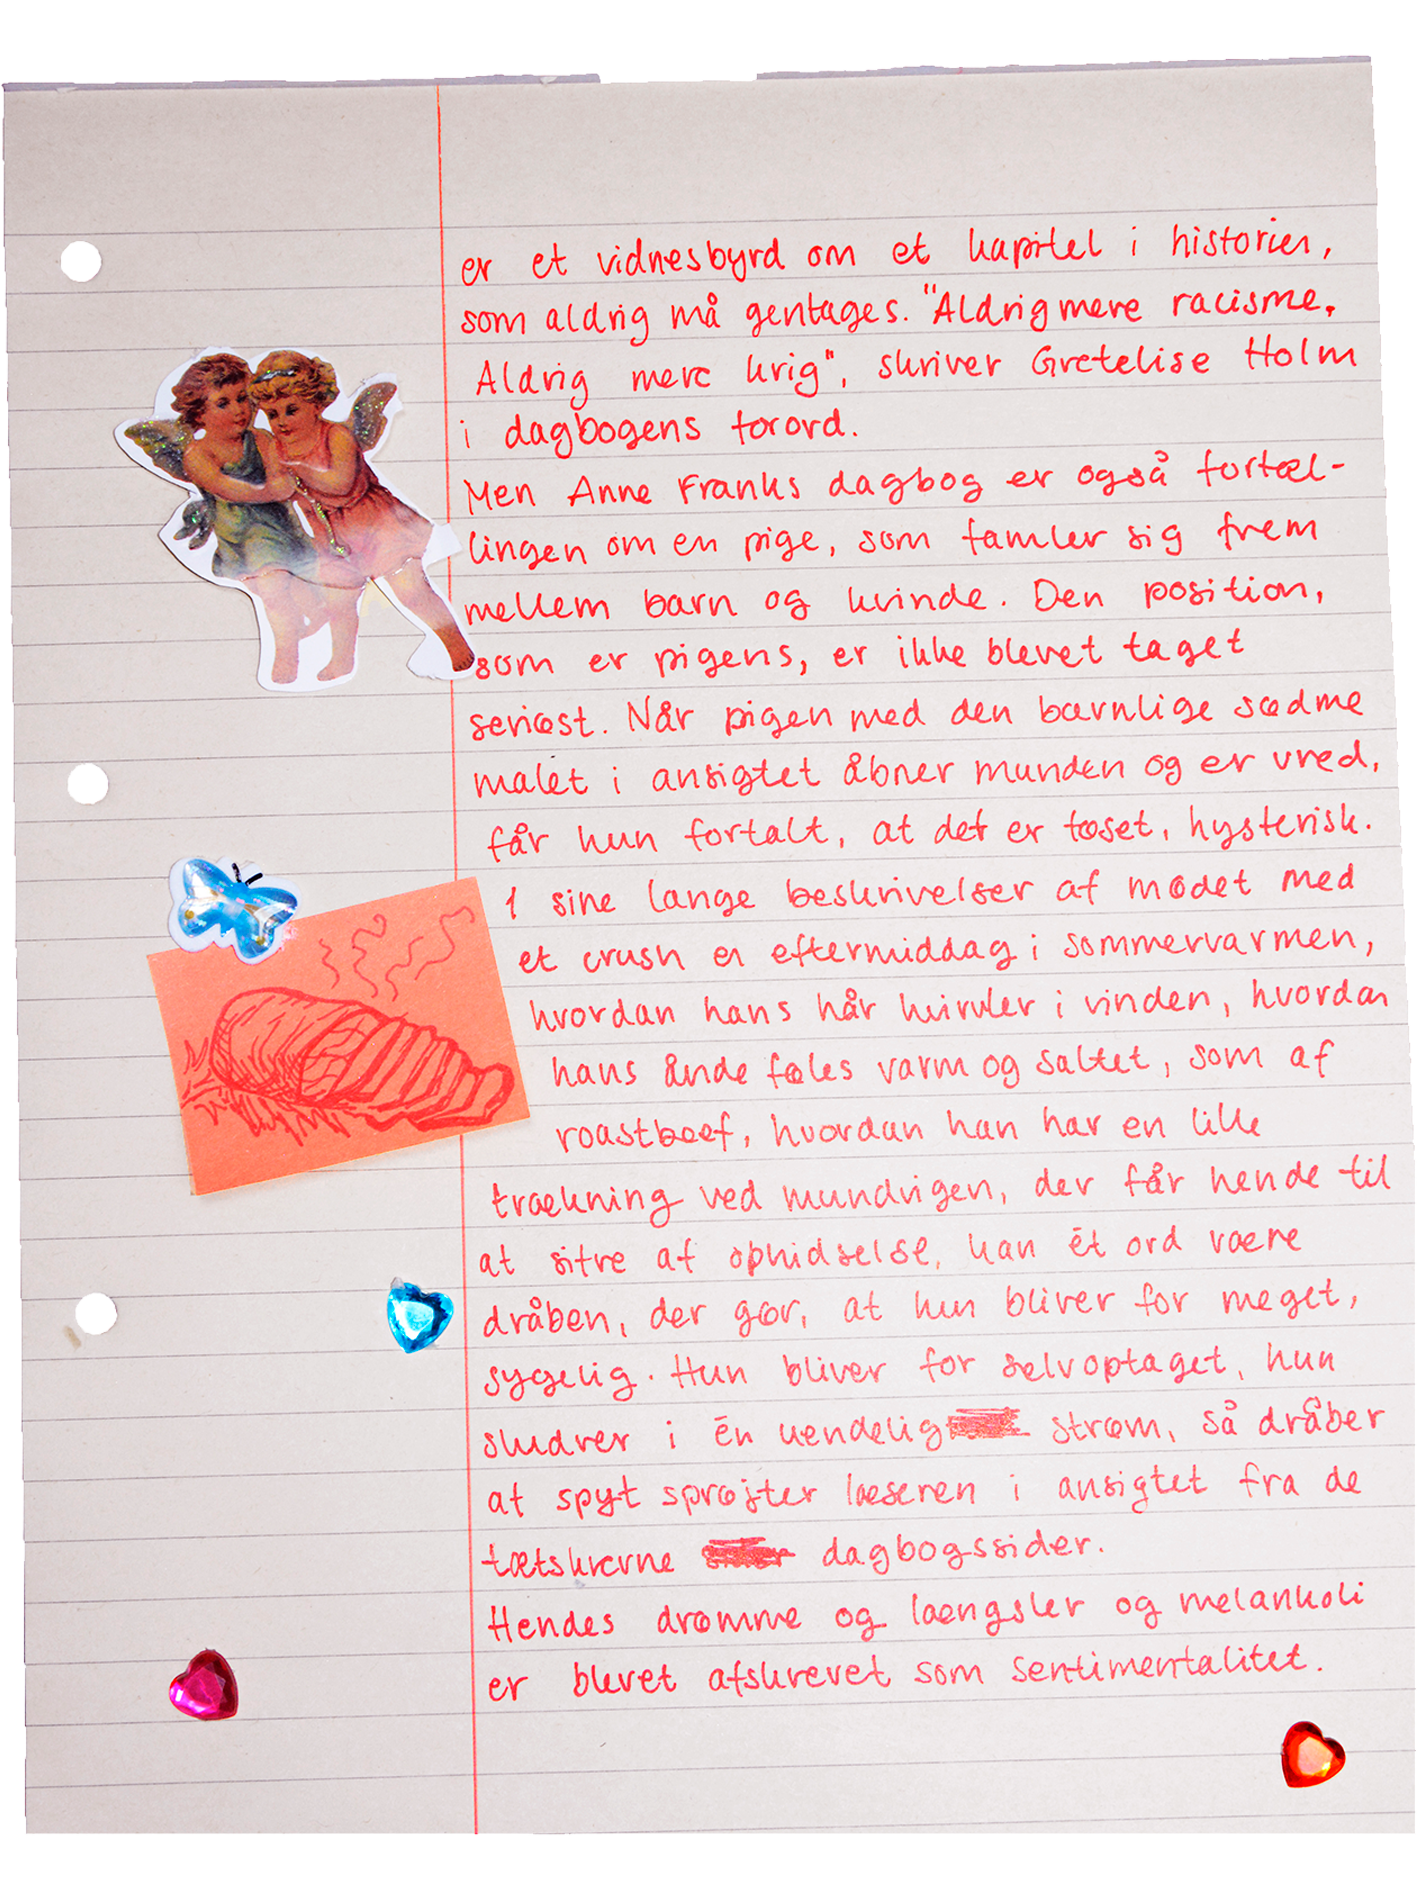 er et vidnesbyrd om et kapitel i historien,
som aldrig må gentages. "Aldrig mere racisme.
Aldrig mere krig", skriver Gretelise Holm
i dagbogens forord.
Men Anne Franks dagbog er også fortæl-
lingen om en pige, som famler sig frem
mellem barn og kvinde. Den position,
som er pigens, er ikke blevet taget
seriøst. Når pigen med den barnlige sødme
malet i ansigtet åbner munden og er vred,
får hun fortalt, at det er tøset, hysterisk.
I sine lange beskrivelser af mødet med
et crush en eftermiddag i sommervarmen,
hvordan hans hår hvirvler i vinden, hvordan
hans ånde føles varm og saltet, som af
roastbeef, hvordan han har en lille
trækning ved mundvigen, der får hende til
at sitre af ophidselse, kan ét ord være
dråben, der gør, at hun bliver for meget,
sygelig. Hun bliver for selvoptaget, hun
sludrer i én uendelig strøm, så dråber
at spyt sprøjter læseren i ansigtet fra de
tætskrevne dagbogssider.
Hendes drømme og længsler og melankoli
er blevet afskrevet som sentimentalitet.